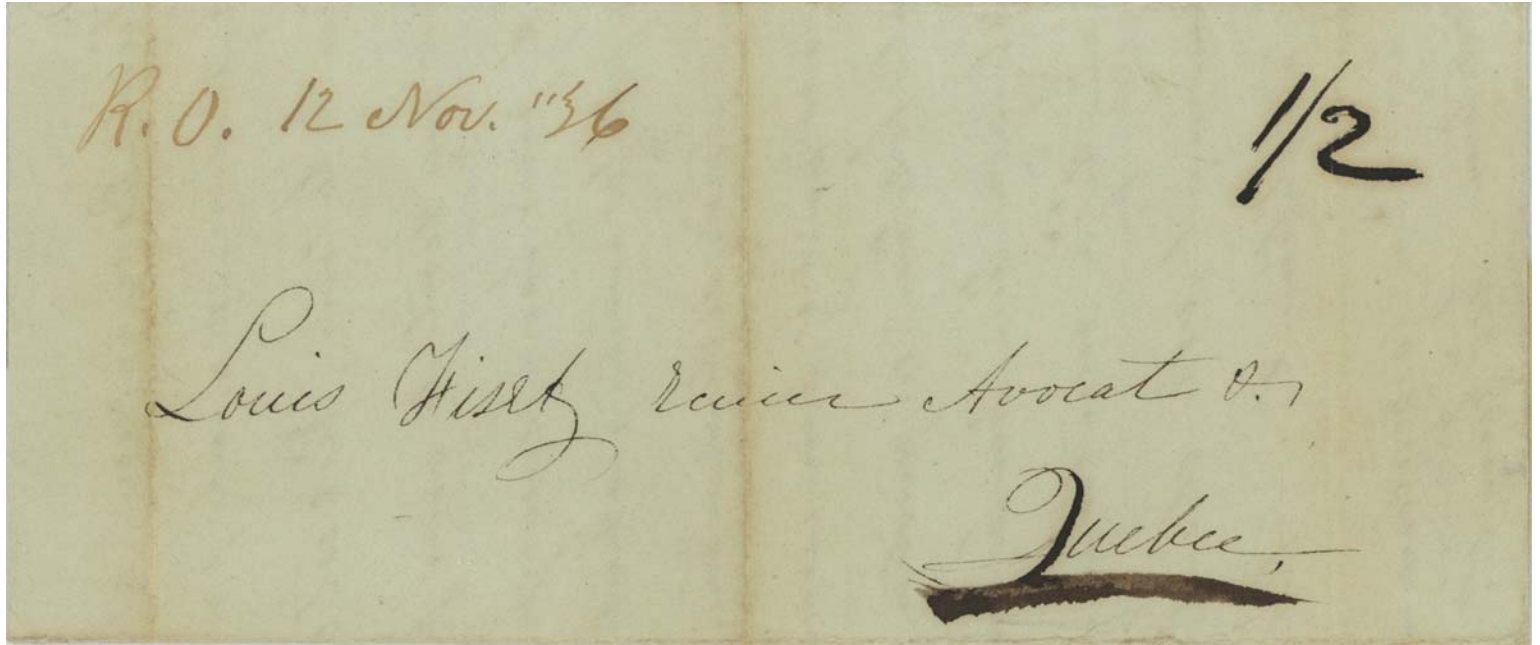 R. O. 12 Nov. "36
1/2
Louis Fiset Ecuier Avocat &.
Quebec,